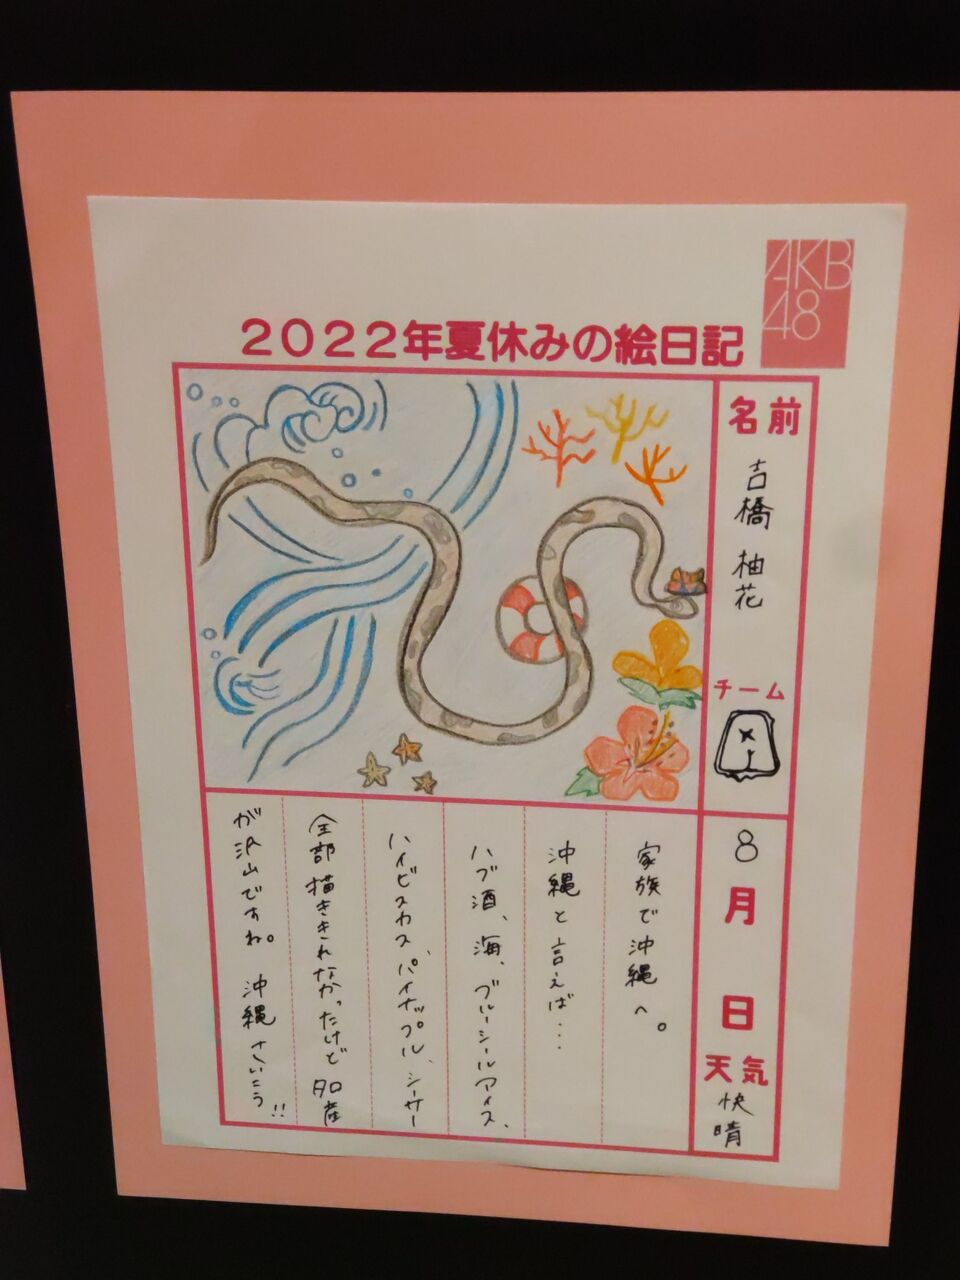 AKB
48
2022年夏休みの絵日記
名前
吉橋 柚花
チーム
8月 日
天気
快晴
家族で沖縄へ。
沖縄と言えば…
ハブ酒、海、ブルーシールアイス、
ハイビスカス、パイナップル、シーサー
全部描ききれなかったけど名産
が沢山ですね。沖縄さいこう!!